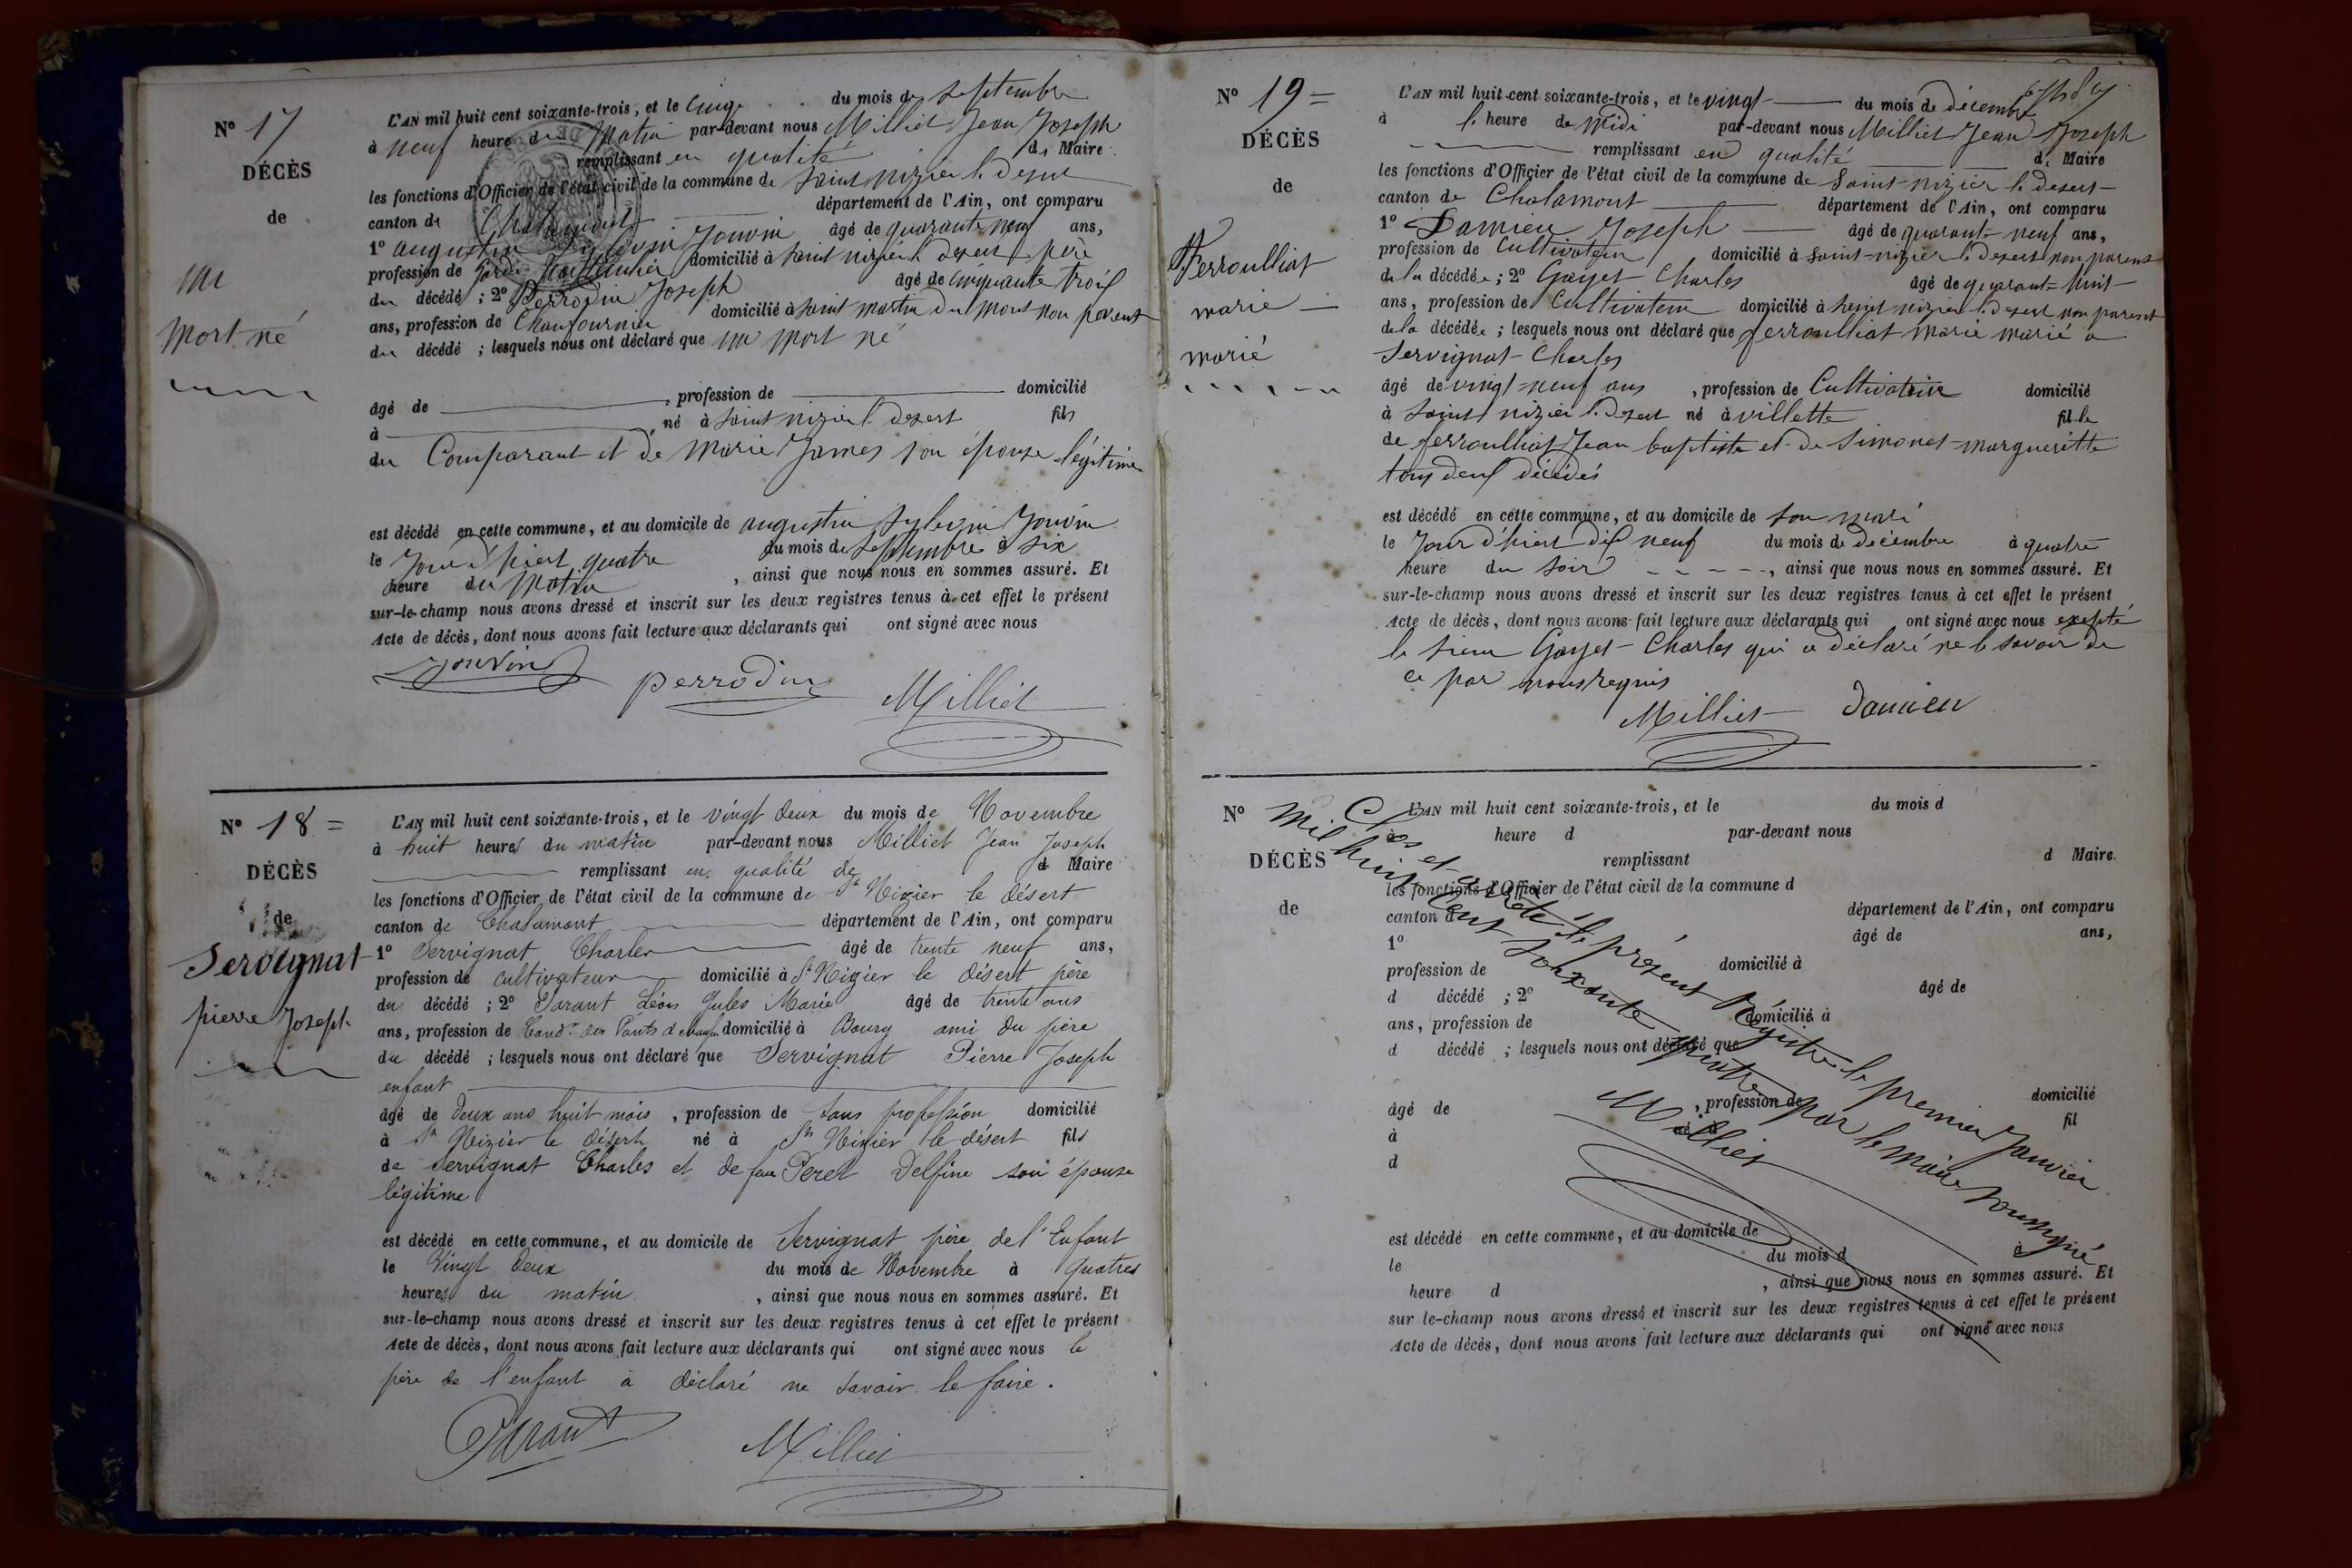 N° 17
DÉCÈS
de
un
Mort né
L'AN mil huit cent soixante-trois, et le cinq du mois de septembre
à neuf heure du Matin par-devant nous Milliet Jean Joseph
remplissant en qualité de Maire
les fonctions d'Officier de l'état civil de la commune de Saint nizier le desert
canton de Chalamont département de l'Ain, ont comparu
1° augustin Jouvin âgé de quarante neuf ans,
profession de domicilié à Saint nizier le desert père
du décédé ; 2° Perrodin Joseph âgé de cinquante trois
ans, profession de Chaufournier domicilié à Saint martin du mont non parent
du décédé ; lesquels nous ont déclaré que un mort né
âgé de , profession de domicilié
à né à Saint nizier le desert fils
du Comparant et de Marie James son épouse légitime
est décédé en cette commune, et au domicile de augustin Jouvin
le Jour d'hier quatre du mois de Septembre à six
heure du Matin , ainsi que nous nous en sommes assuré. Et
sur-le-champ nous avons dressé et inscrit sur les deux registres tenus à cet effet le présent
Acte de décès, dont nous avons fait lecture aux déclarants qui ont signé avec nous
Jouvin perrodin Milliet
N° 18 =
DÉCÈS
de
Servignat
pierre Joseph
L'AN mil huit cent soixante-trois, et le vingt deux du mois de Novembre
à huit heures du matin par-devant nous Milliet Jean Joseph
remplissant en qualité de d Maire
les fonctions d'Officier de l'état civil de la commune de St Nizier le désert
canton de Chalamont département de l'Ain, ont comparu
1° Servignat Charles âgé de trente neuf ans,
profession de cultivateur domicilié à St Nizier le désert père
du décédé ; 2° Parant Léon Jules Marie âgé de trente ans
ans, profession de Condr des Ponts et domicilié à Bourg ami du père
du décédé ; lesquels nous ont déclaré que Servignat Pierre Joseph
enfant
âgé de deux ans huit mois , profession de sans profession domicilié
à St Nizier le désert né à St Nizier le désert fils
de Servignat Charles et de feue Peret Delfine son épouse
légitime
est décédé en cette commune, et au domicile de Servignat père de l'Enfant
le Vingt deux du mois de Novembre à quatres
heures du matin , ainsi que nous nous en sommes assuré. Et
sur-le-champ nous avons dressé et inscrit sur les deux registres tenus à cet effet le présent
Acte de décès, dont nous avons fait lecture aux déclarants qui ont signé avec nous le
père de l'enfant a déclaré ne savoir le faire.
Parant Milliet
N° 19 =
DÉCÈS
de
Ferroulliat
marie
marié
L'AN mil huit cent soixante-trois, et le vingt du mois de décembre
à l' heure de midi par-devant nous Milliet Jean Joseph
remplissant en qualité de Maire
les fonctions d'Officier de l'état civil de la commune de Saint-nizier le desert
canton de Chalamont département de l'Ain, ont comparu
1° Damien Joseph âgé de quarant-neuf ans,
profession de Cultivateur domicilié à Saint-nizier le desert non parent
de la décédée ; 2° Gayet Charles âgé de quarant-huit
ans, profession de Cultivateur domicilié à Saint nizier le desert non parent
de la décédée ; lesquels nous ont déclaré que ferroulliat marie marié a
Servignat Charles
âgé de vingt-neuf ans , profession de Cultivatrice domicilié
à Saint nizier le desert né à villette fil le
de ferroulliat Jean baptiste et de Simonet margueritte
tous deux décédés
est décédé en cette commune, et au domicile de son mari
le Jour d'hier dix neuf du mois de decembre à quatre
heure du soir , ainsi que nous nous en sommes assuré. Et
sur-le-champ nous avons dressé et inscrit sur les deux registres tenus à cet effet le présent
Acte de décès, dont nous avons fait lecture aux déclarants qui ont signé avec nous exepté
le sieur Gayet Charles qui a déclaré ne le savoir de
ce par nous requis
Milliet Damien
N°
DÉCÈS
de
L'AN mil huit cent soixante-trois, et le du mois d
à heure d par-devant nous
remplissant d Maire.
les fonctions d'Officier de l'état civil de la commune d
canton d département de l'Ain, ont comparu
1° âgé de ans,
profession de domicilié à
d décédé ; 2° âgé de
ans, profession de domicilié à
d décédé ; lesquels nous ont déclaré que
âgé de , profession de domicilié
à né à fil
d
est décédé en cette commune, et au domicile de
le du mois d à
heure d , ainsi que nous nous en sommes assuré. Et
sur le-champ nous avons dressé et inscrit sur les deux registres tenus à cet effet le présent
Acte de décès, dont nous avons fait lecture aux déclarants qui ont signé avec nous
Clos et arrêté le présent Régistre le premier Janvier
mil huit cent soixante quatre par le maire soussigné
Milliet